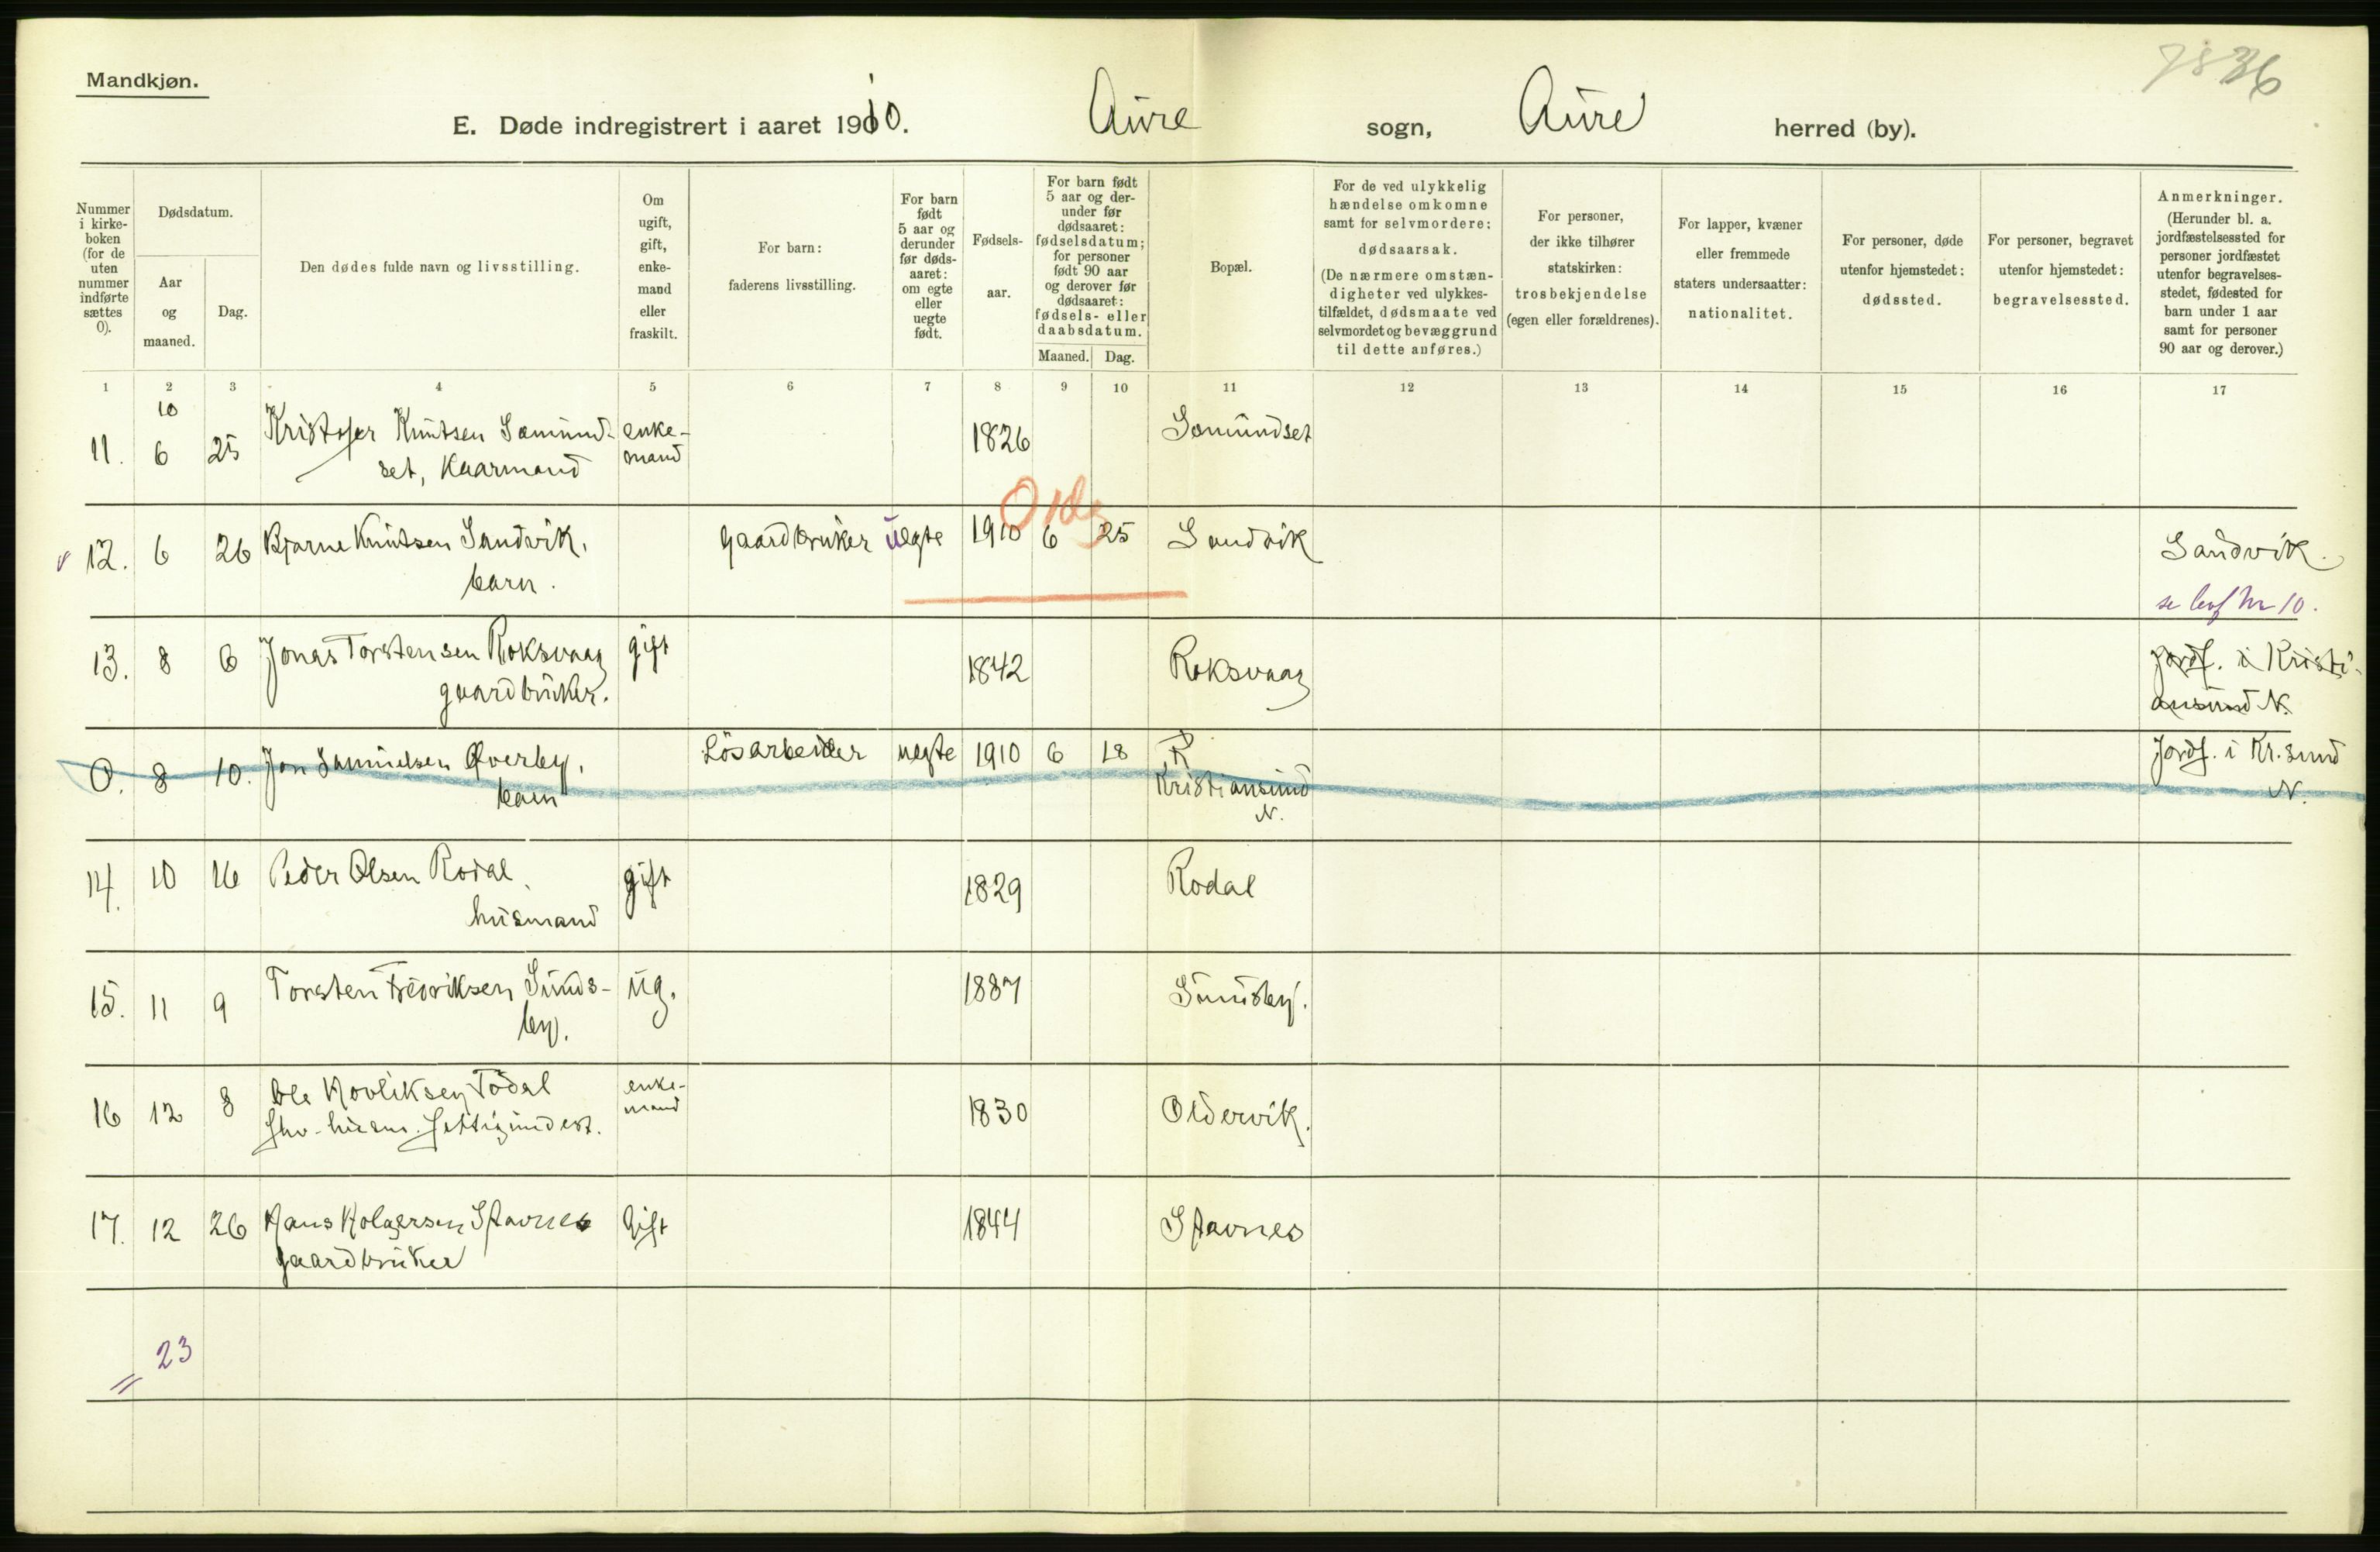 7836
Mandkjøn.
E. Døde indregistrert i aaret 1910. Aure sogn, Aure herred (by).
Nummer i kirkeboken (for de uten nummer indførte sættes 0).
Dødsdatum.
Aar og maaned.
Dag.
Den dødes fulde navn og livsstilling.
Om ugift, gift, enkemand eller fraskilt.
For barn: faderens livsstilling.
For barn født 5 aar og derunder før dødsaaret: om egte eller uegte født.
Fødselsaar.
For barn født 5 aar og derunder før dødsaaret: fødselsdatum; for personer født 90 aar og derover før dødsaaret: fødsels- eller daabsdatum.
Maaned. Dag.
Bopæl.
For de ved ulykkelig hændelse omkomne samt for selvmordere: dødsaarsak.
(De nærmere omstændigheter ved ulykkestilfældet, dødsmaate ved selvmordet og bevæggrund til dette anføres.)
For personer, der ikke tilhører statskirken: trosbekjendelse (egen eller forældrenes).
For lapper, kvæner eller fremmede staters undersaatter: nationalitet.
For personer, døde utenfor hjemstedet: dødssted.
For personer, begravet utenfor hjemstedet: begravelsessted.
Anmerkninger.
(Herunder bl. a. jordfæstelsessted for personer jordfæstet utenfor begravelsesstedet, fødested for barn under 1 aar samt for personer 90 aar og derover.)
1 2 3 4 5 6 7 8 9 10 11 12 13 14 15 16 17
10
11. 6 25 Kristofer Knutsen Somund- enke- 1826 Somundset
set, Kaarmand mand
12. 6 26 Bjarne Knutsen Sandvik, gaardbruker uegte 1910 6 25 Sandvik Sandvik.
barn. se lev nr 10.
13. 8 6 Jonas Torstensen Roksvaag gift 1842 Roksvaag Jordf. i Kristi-
gaardbruker. ansund N.
0. 8 10. Jon Samuelsen Øverby, Lösarbeider uegte 1910 6 18 Kristiansund Jordf. i Kr.sund
barn N. N.
14. 10 16 Peder Olsen Rodal, gift 1829 Rodal
husmand
15. 11 9 Torsten Fredriksen Sunds- ug. 1887 Sundsby.
by.
16 12 8 Ole Hovliksen Tödal enke- 1830 Oldervik.
fhv. husm. mand
17. 12 26 Hans Holgersen Stavnes Gift 1844 Stavnes
gaardbruker
= 23